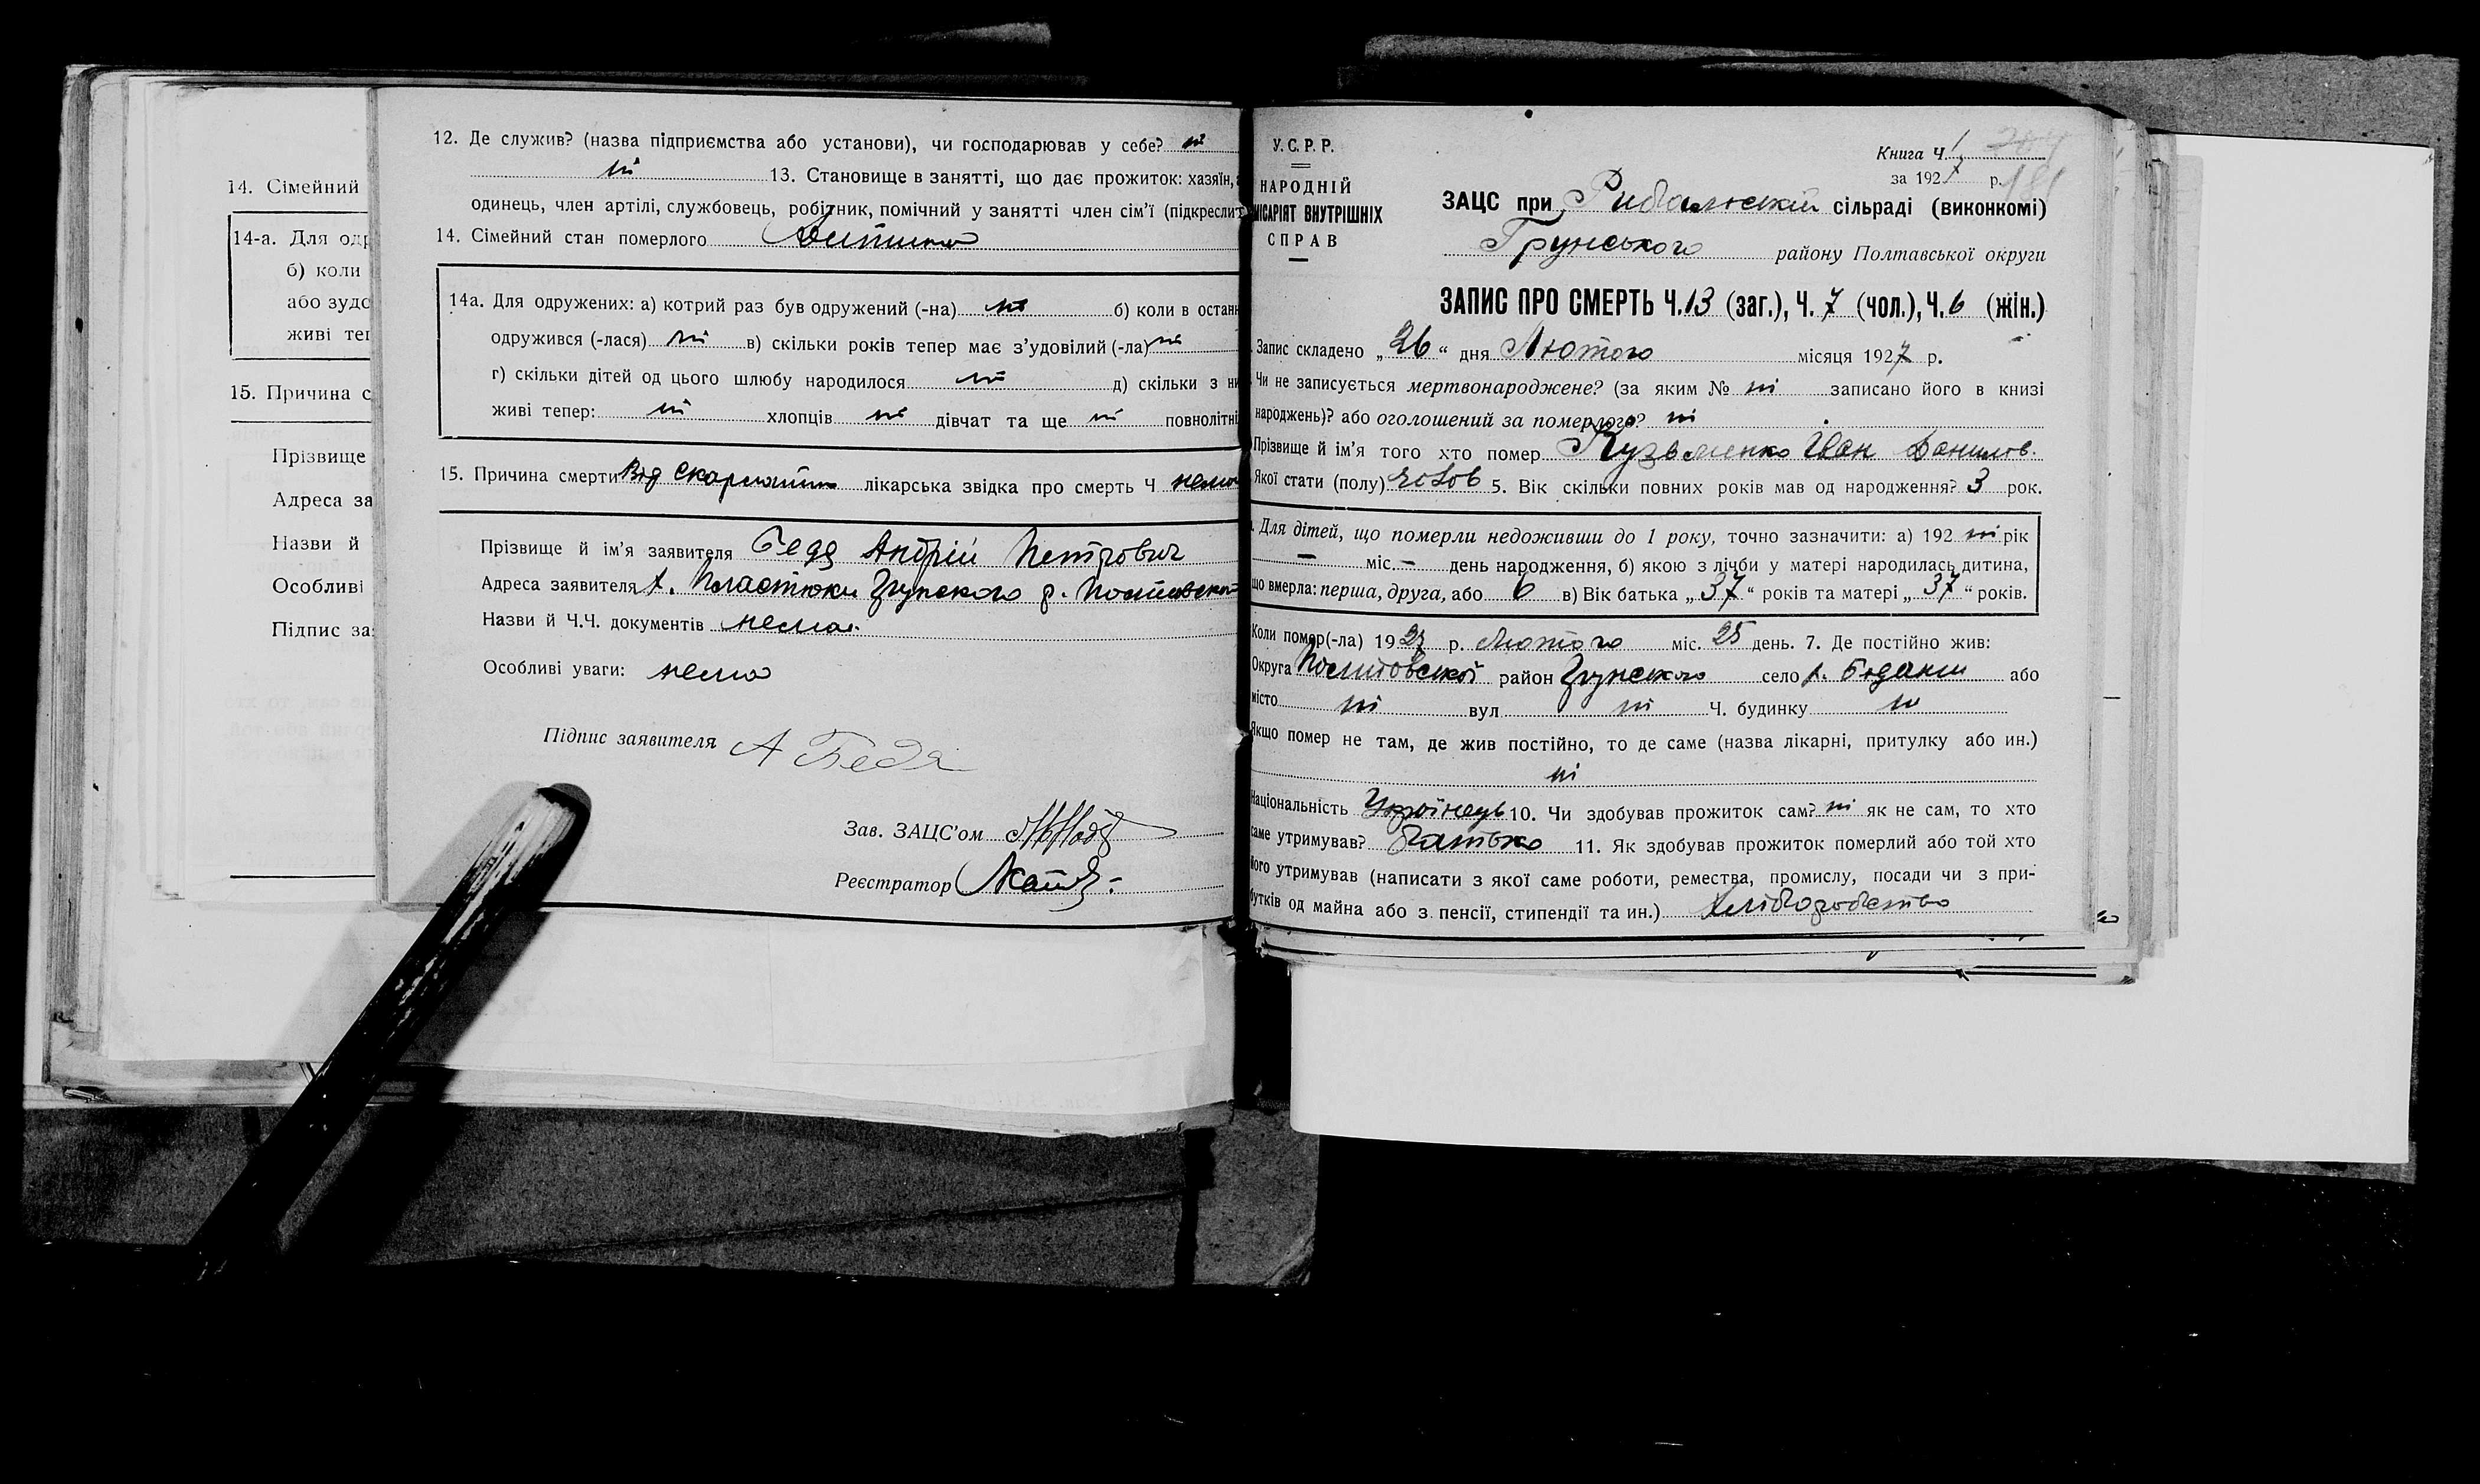 14. Сімейний
14-а. Для одр
б) коли
або зудо
живі теп
15. Причина с
Прізвище
Адреса за
Назви й
Особливі
Підпис за
12. Де служив? (назва підприємства або установи), чи господарював у себе? ні
ні 13. Становище в занятті, що дає прожиток: хазяїн,
одинець, член артілі, службовець, робітник, помічний у занятті член сім’ї (підкреслит
14. Сімейний стан померлого Дитина
14а. Для одружених: а) котрий раз був одружений (-на) ні б) коли в останн
одружився (-лася) ні в) скільки років тепер має з’удовілий (-ла) ні
г) скільки дітей од цього шлюбу народилося ні д) скільки з ни
живі тепер: ні хлопців ні дівчат та ще ні повнолітні
15. Причина смерти Від скарлатини лікарська звідка про смерть Ч нема
Прізвище й ім’я заявителя Бедя Андрій Петрович
Адреса заявителя х. Пластюки Грунского р. Полтавської
Назви й Ч.Ч. документів нема.
Особливі уваги: нема
Підпис заявителя А Бедя
Зав. ЗАЦС’ом
Реєстратор
У. С. Р. Р.
НАРОДНІЙ
МІСАРІЯТ ВНУТРІШНІХ
СПРАВ
Книга Ч. 1
за 1927 р. 181
ЗАЦС при Рибальській сільраді (виконкомі)
Грунського району Полтавської округи
ЗАПИС ПРО СМЕРТЬ Ч. 13 (заг.), Ч. 7 (чол.), Ч. 6 (жін.)
Запис складено „ 26 “ дня Лютого місяця 1927 р.
Чи не записується мертвонароджене? (за яким № ні записано його в книзі
народжень)? або оголошений за померлого? ні
Прізвище й ім’я того хто помер Кузьменко Іван Данилов.
Якої стати (полу) чолов 5. Вік скільки повних років мав од народження? 3 рок.
Для дітей, що померли недоживши до 1 року, точно зазначити: а) 192 ні рік
— міс. — день народження, б) якою з лічби у матері народилась дитина,
що вмерла: перша, друга, або 6 в) Вік батька „ 37 “ років та матері „ 37 “ років.
Коли помер(-ла) 1927 р. Лютого міс. 25 день. 7. Де постійно жив:
Округа Полтовської район Грунского село х. або
місто ні вул ні Ч. будинку ні
Якщо помер не там, де жив постійно, то де саме (назва лікарні, притулку або ин.)
ні
Національність Українець 10. Чи здобував прожиток сам? ні як не сам, то хто
саме утримував? батько 11. Як здобував прожиток померлий або той хто
його утримував (написати з якої саме роботи, ремества, промислу, посади чи з при-
бутків од майна або з пенсії, стипендії та ин.) хліборобство